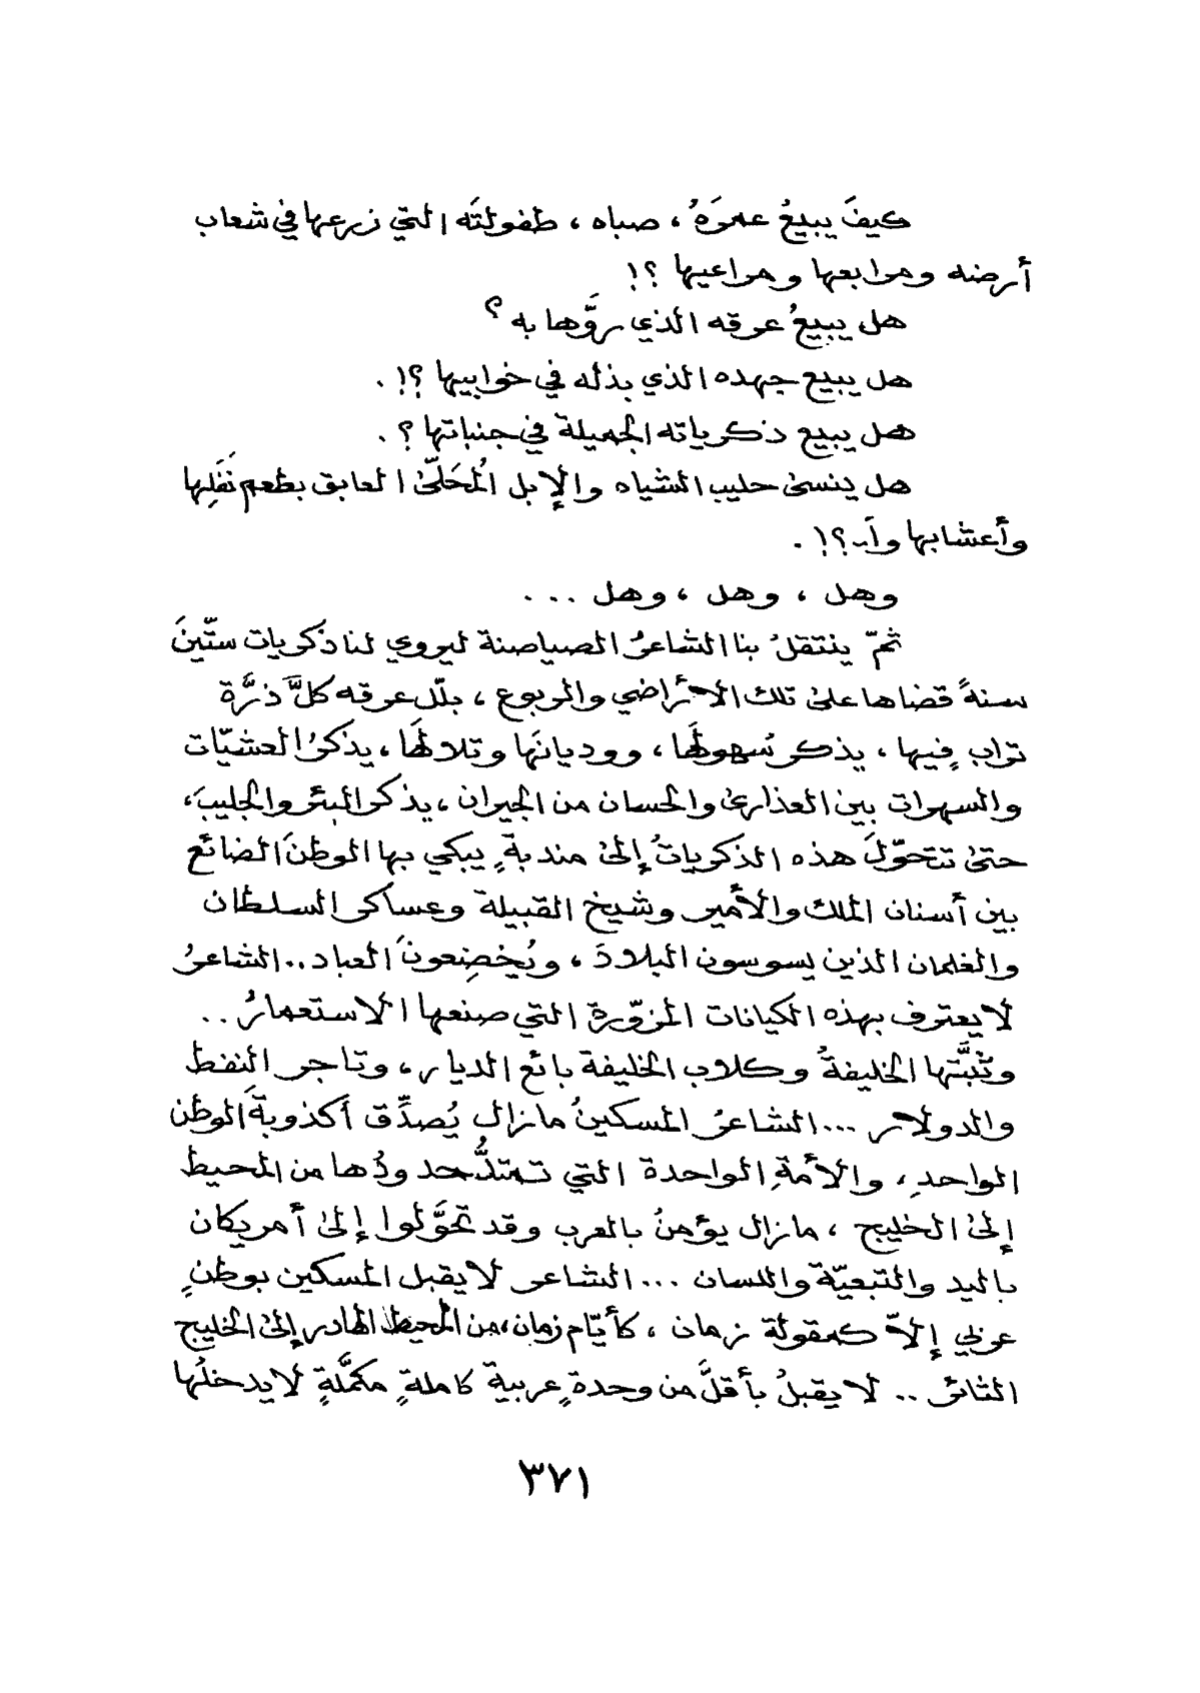 كيفَ يبيعُ عمرَهُ ، صباه ، طفولتَه التي زرعها في شعاب
أرضه ومرابعها ومراعيها ؟!
هل يبيعُ عرقه الذي روَّها به ؟
هل يبيع جهده الذي بذله في خوابيها ؟! .
هل يبيع ذكرياته الجميلة في جنباتها ؟ .
هل ينسى حليب الشياه والإبل المُحَلّى العابق بطعم نَفَلِها
وأعشابها وأ..؟! .
وهل ، وهل ، وهل ...
ثمّ ينتقلُ بنا الشاعرُ الصياصنة ليروي لنا ذكريات ستّينَ
سنةً قضاها على تلك الأراضي والربوع ، بلّل عرقه كلَّ ذرَّة
ترابٍ فيها ، يذكر سُهولَها ، ووديانَها وتلالَها ، يذكرُ العشيّات
والسهرات بين العذارى والحسان من الجيران ، يذكر البئر والجليبَ ،
حتى تتحوّلَ هذه الذكرياتُ إلى مندبةٍ يبكي بها الوطنَ الضائع
بين أسنان الملك والأمير وشيخ القبيلة وعساكر السلطان
والغلمان الذين يسوسون البلادَ ، ويُخضِعونَ العباد .. الشاعرُ
لا يعترف بهذه الكيانات المزوّرة التي صنعها الاستعمارُ ..
وثبَّتها الخليفةُ وكلاب الخليفة بائع الديار ، وتاجر النفط
والدولار ... الشاعرُ المسكينُ مازال يُصدِّق أكذوبةَ الوطن
الواحدِ ، والأمةِ الواحدة التي تمتدُّ حدودُها من المحيط
إلى الخليج ، مازال يؤمنُ بالعرب وقد تحوَّلوا إلى أمريكان
باليد والتبعيّة واللسان ... الشاعر لا يقبل المسكين بوطنٍ
عربي إلاّ كمقولة زمان ، كأيّام زمان ، من المحيط الهادر إلى الخليج
الثائر .. لا يقبلُ بأقلَّ من وحدةٍ عربية كاملةٍ مكمَّلةٍ لا يدخلُها
٣٧١